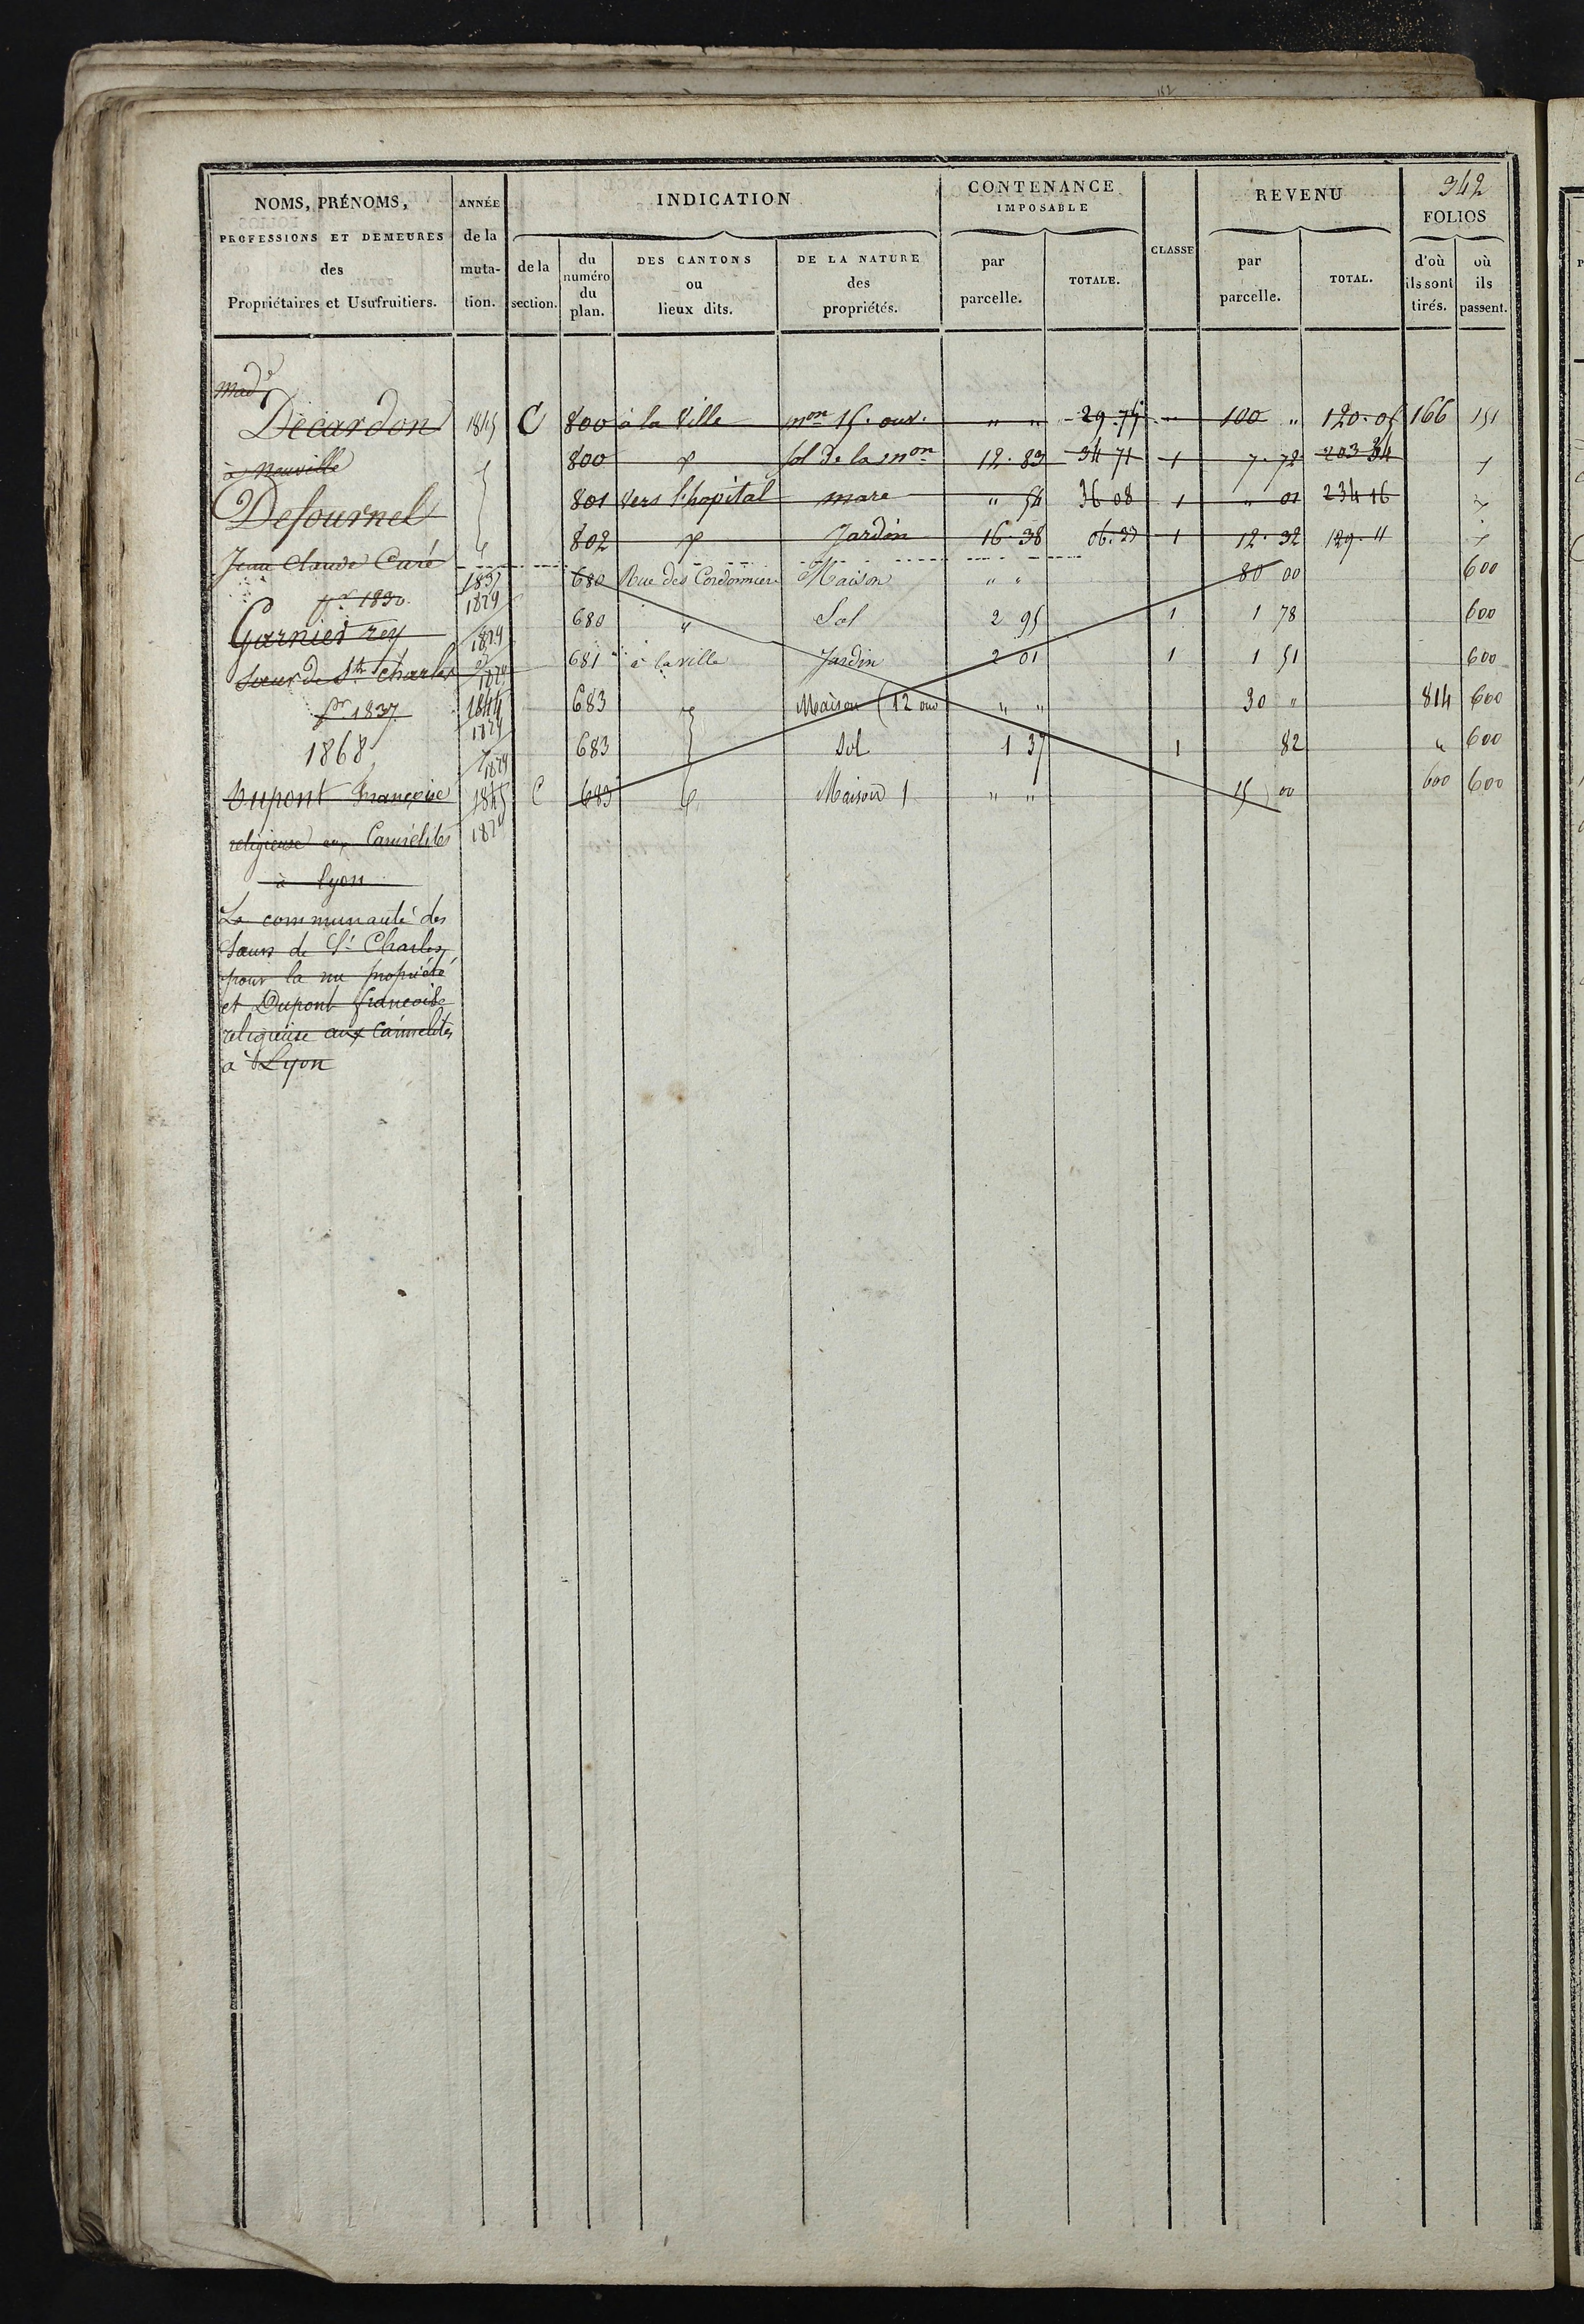 342
NOMS, PRÉNOMS,
PROFESSIONS ET DEMEURES
des
Propriétaires et Usufruitiers.
ANNÉE
de la
muta-
tion.
INDICATION
de la
section.
du
numéro
du
plan.
DES CANTONS
ou
lieux dits.
DE LA NATURE
des
propriétés.
CONTENANCE
IMPOSABLE
par
parcelle.
TOTALE.
CLASSE
REVENU
par
parcelle.
TOTAL.
FOLIOS
d'où
ils sont
tirés.
où
ils
passent.
Décardon C 800 à la Ville mon 15. ouv. " " 29.75 100 " 120.05 166 151
à Neuville 800 sol de la mon 12.83 34 71 1 7.72 203 34
Defournel 801 vers l'hopital mare " 54 36 08 1 " 01 234 16
802 Jardin 16.38 06.33 1 12.32 129.11
Jean Claude Curé
pr 1830. 1837 680 Rue des Cordonnier Maison " " 80 00 600
1829
Garnier rey 680 " Sol 2 95 1 1 78 600
Sœur de St Charles 681 à la ville Jardin 2 01 1 1 51 600
pr 1837 1844 683 Maison (12 ouv " " 30 " 814 600
1868 683 Sol 1 37 1 82 " 600
Dupont Françoise 1845 C 683 Maison 1 " " 15 00 600 600
religieuse aux Carmélites
à Lyon
La communauté des
Sœurs de St Charles,
pour la nu propriété
et Dupont françoise
religieuse aux Carmelites
à Lyon